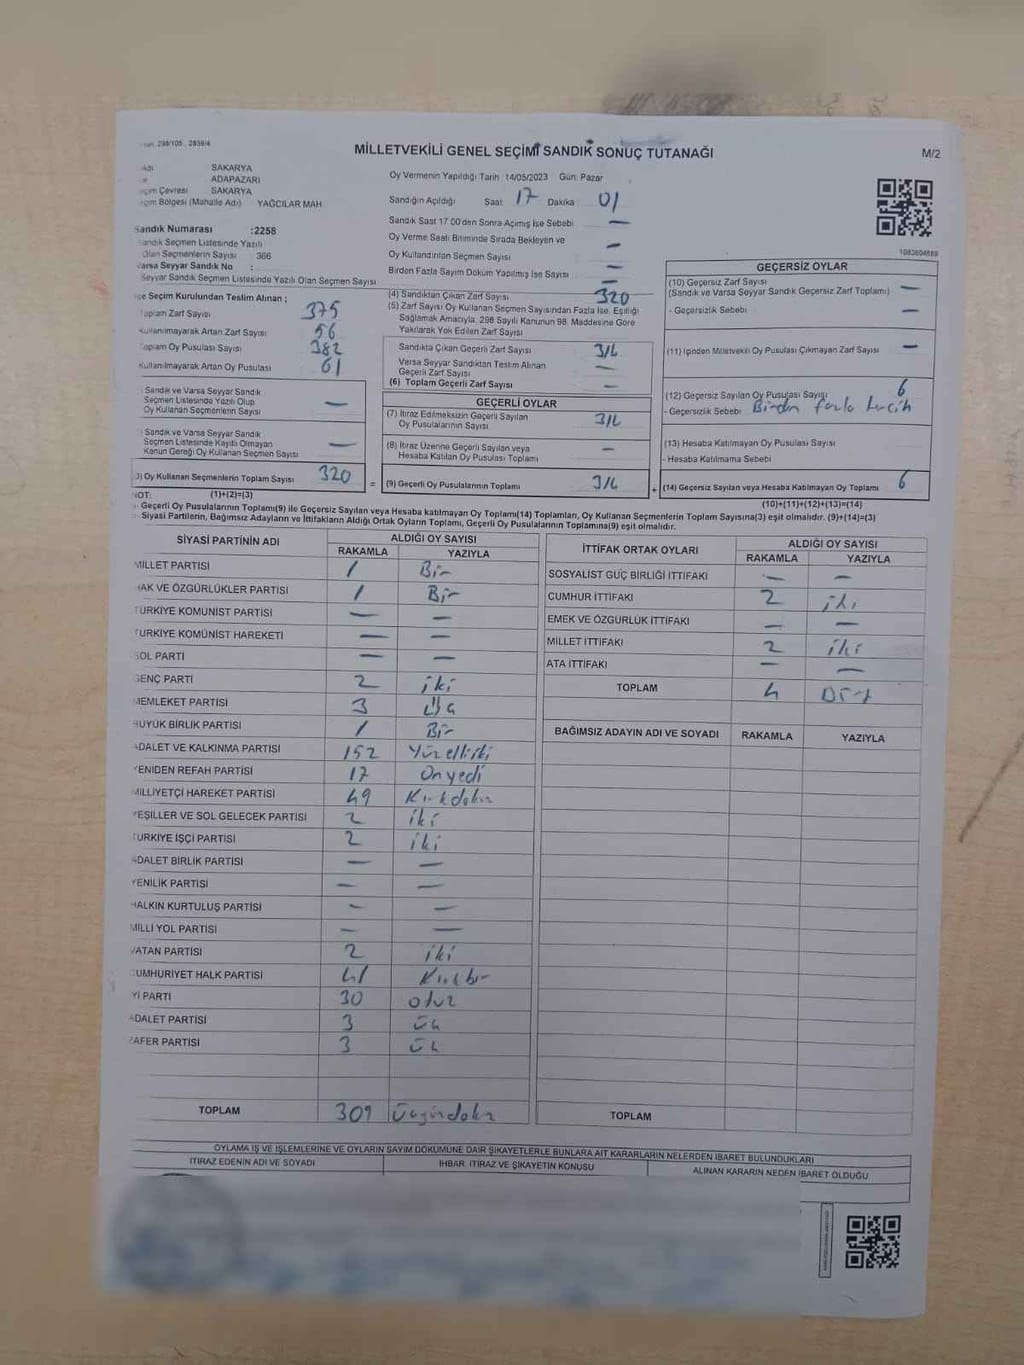 298/105 , 2839/4
MİLLETVEKİLİ GENEL SEÇİMİ SANDIK SONUÇ TUTANAĞI
M/2
SAKARYA
ADAPAZARI
SAKARYA
YAĞCILAR MAH
Sandık Numarası :2258
Sandık Seçmen Listesinde Yazılı
Olan Seçmenlerin Sayısı : 366
Varsa Seyyar Sandık No :
Seyyar Sandık Seçmen Listesinde Yazılı Olan Seçmen Sayısı
Oy Vermenin Yapıldığı Tarih 14/05/2023 Gün: Pazar
Sandığın Açıldığı Saat 17 Dakika 01
Sandık Saat 17.00'den Sonra Açımış İse Sebebi —
Oy Verme Saati Bitiminde Sırada Bekleyen ve —
Oy Kullandırılan Seçmen Sayısı —
Birden Fazla Sayım Döküm Yapılmış İse Sayısı —
1083604689
çe Seçim Kurulundan Teslim Alınan ;
Toplam Zarf Sayısı 375
Kullanılmayarak Artan Zarf Sayısı 56
Toplam Oy Pusulası Sayısı 382
Kullanılmayarak Artan Oy Pusulası 61
Sandık ve Varsa Seyyar Sandık
Seçmen Listesinde Yazılı Olup
Oy Kullanan Seçmenlerin Sayısı —
Sandık ve Varsa Seyyar Sandık
Seçmen Listesinde Kayıtlı Olmayan
Kanun Gereği Oy Kullanan Seçmen Sayısı —
3) Oy Kullanan Seçmenlerin Toplam Sayısı 320 =
(4) Sandıktan Çıkan Zarf Sayısı 320
(5) Zarf Sayısı Oy Kullanan Seçmen Sayısından Fazla İse, Eşitliği
Sağlamak Amacıyla, 298 Sayılı Kanunun 98. Maddesine Göre
Yakılarak Yok Edilen Zarf Sayısı
Sandıkta Çıkan Geçerli Zarf Sayısı 314
Varsa Seyyar Sandıktan Teslim Alınan
Geçerli Zarf Sayısı —
(6) Toplam Geçerli Zarf Sayısı —
GEÇERLİ OYLAR
(7) İtiraz Edilmeksizin Geçerli Sayılan
Oy Pusulalarının Sayısı 314
(8) İtiraz Üzerine Geçerli Sayılan veya
Hesaba Katılan Oy Pusulası Toplamı —
(9) Geçerli Oy Pusulalarının Toplamı 314 +
GEÇERSİZ OYLAR
(10) Geçersiz Zarf Sayısı
(Sandık ve Varsa Seyyar Sandık Geçersiz Zarf Toplamı) —
- Geçersizlik Sebebi —
(11) İçinden Milletvekili Oy Pusulası Çıkmayan Zarf Sayısı —
(12) Geçersiz Sayılan Oy Pusulası Sayısı 6
- Geçersizlik Sebebi Birden fazla tercih
(13) Hesaba Katılmayan Oy Pusulası Sayısı
- Hesaba Katılmama Sebebi
(14) Geçersiz Sayılan veya Hesaba Katılmayan Oy Toplamı 6
NOT: (1)+(2)=(3) (10)+(11)+(12)+(13)=(14)
Geçerli Oy Pusulalarının Toplamı(9) ile Geçersiz Sayılan veya Hesaba katılmayan Oy Toplamı(14) Toplamları, Oy Kullanan Seçmenlerin Toplam Sayısına(3) eşit olmalıdır. (9)+(14)=(3)
Siyasi Partilerin, Bağımsız Adayların ve İttifakların Aldığı Ortak Oyların Toplamı, Geçerli Oy Pusulalarının Toplamına(9) eşit olmalıdır.
SİYASİ PARTİNİN ADI ALDIĞI OY SAYISI
RAKAMLA YAZIYLA
MİLLET PARTİSİ 1 Bir
HAK VE ÖZGÜRLÜKLER PARTİSİ 1 Bir
TÜRKİYE KOMÜNİST PARTİSİ — —
TÜRKİYE KOMÜNİST HAREKETİ — —
SOL PARTİ — —
GENÇ PARTİ 2 iki
MEMLEKET PARTİSİ 3 üç
BÜYÜK BİRLİK PARTİSİ 1 Bir
ADALET VE KALKINMA PARTİSİ 152 Yüzelliiki
YENİDEN REFAH PARTİSİ 17 Onyedi
MİLLİYETÇİ HAREKET PARTİSİ 49 Kırkdokuz
YEŞİLLER VE SOL GELECEK PARTİSİ 2 iki
TÜRKİYE İŞÇİ PARTİSİ 2 iki
ADALET BİRLİK PARTİSİ — —
YENİLİK PARTİSİ — —
HALKIN KURTULUŞ PARTİSİ — —
MİLLİ YOL PARTİSİ — —
VATAN PARTİSİ 2 iki
CUMHURİYET HALK PARTİSİ 41 Kırkbir
İYİ PARTİ 30 otuz
ADALET PARTİSİ 3 üç
ZAFER PARTİSİ 3 üç
TOPLAM 309 Üçyüzdokuz
İTTİFAK ORTAK OYLARI ALDIĞI OY SAYISI
RAKAMLA YAZIYLA
SOSYALİST GÜÇ BİRLİĞİ İTTİFAKI — —
CUMHUR İTTİFAKI 2 iki
EMEK VE ÖZGÜRLÜK İTTİFAKI — —
MİLLET İTTİFAKI 2 iki
ATA İTTİFAKI — —
TOPLAM 4 Dört
BAĞIMSIZ ADAYIN ADI VE SOYADI RAKAMLA YAZIYLA
TOPLAM
OYLAMA İŞ VE İŞLEMLERİNE VE OYLARIN SAYIM DÖKÜMÜNE DAİR ŞİKAYETLERLE BUNLARA AİT KARARLARIN NELERDEN İBARET BULUNDUKLARI
İTİRAZ EDENİN ADI VE SOYADI İHBAR, İTİRAZ VE ŞİKAYETİN KONUSU ALINAN KARARIN NEDEN İBARET OLDUĞU